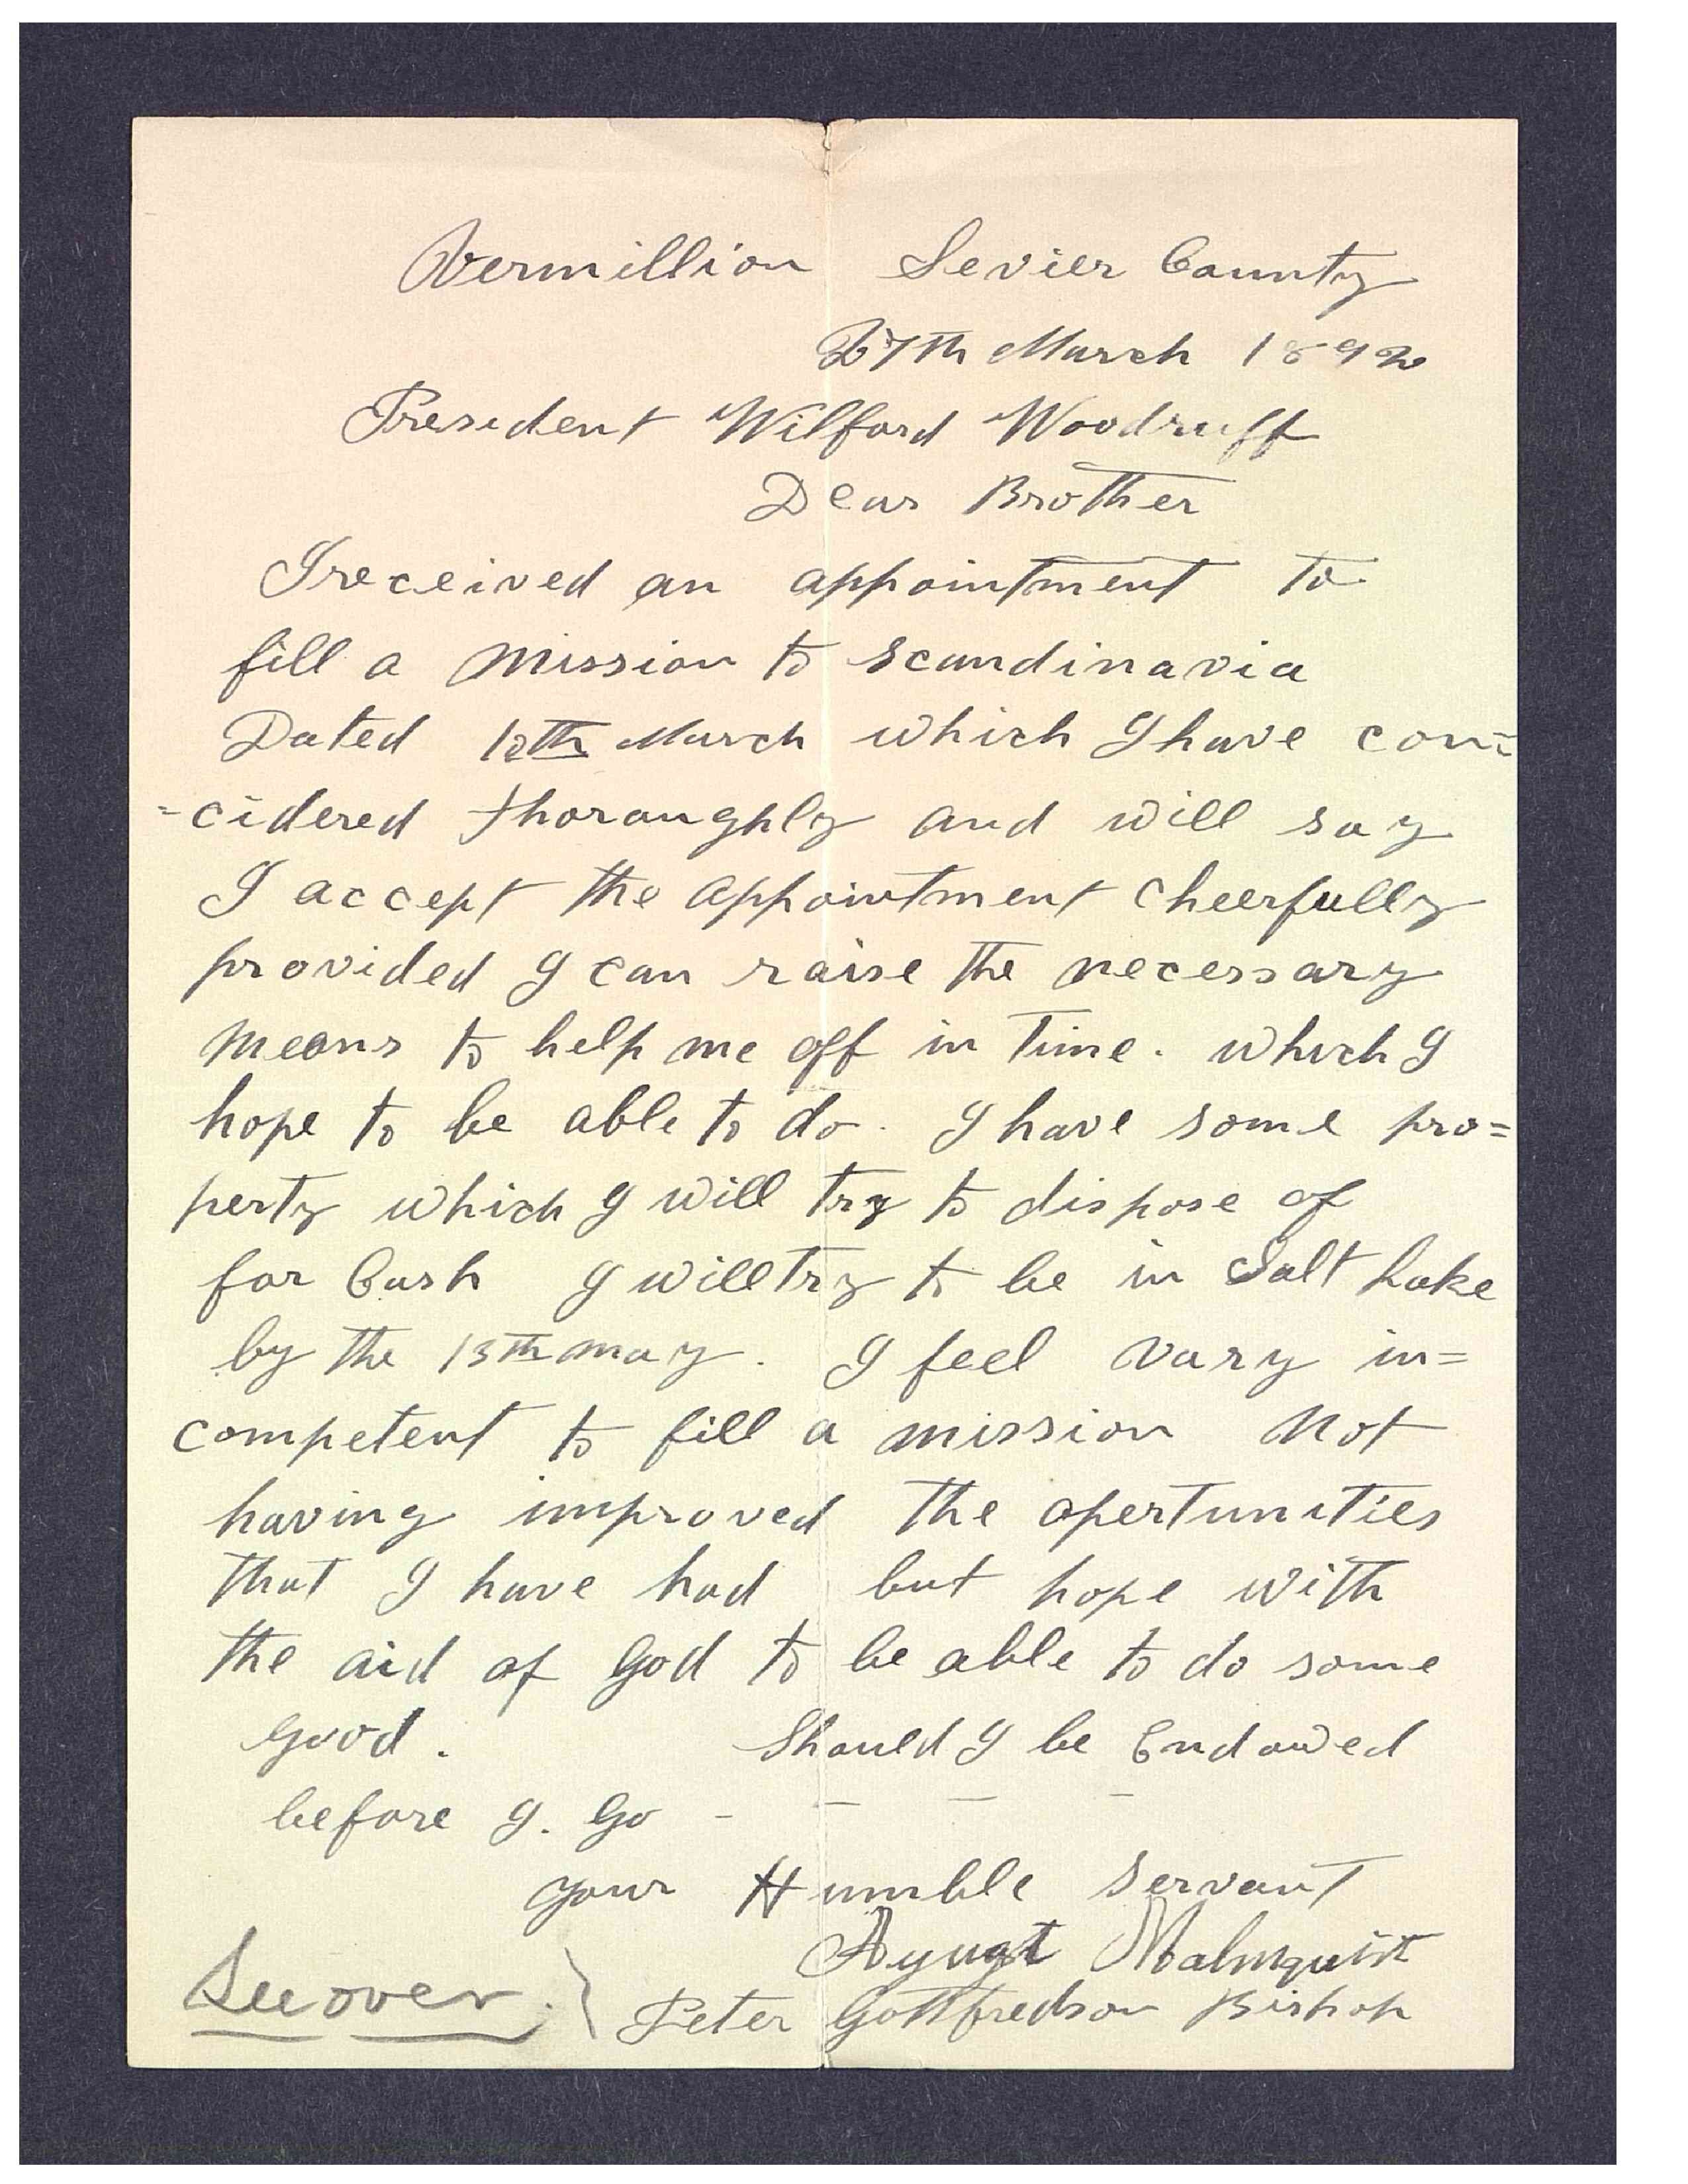 Vermillion Sevier County
27th March 1892
President Wilford Woodruff
Dear Brother
I received an appointment to
fill a Mission to Scandinavia
Dated 12th March which I have con=
=cidered thoroughly and will say
I accept the appointment cheerfully
provided I can raise the necessary
means to help me off in time. which I
hope to be able to do. I have some pro=
perty which I will try to dispose of
for Cash I will try to be in Salt Lake
by the 13th may. I feel vary in=
competent to fill a mission Not
having improved the opertunities
that I have had but hope with
the aid of God to be able to do some
good. Should I be Endowed
before I. Go - - - -
your Humble servant
Malmquist
See over. } Peter Gottfredson Bishop